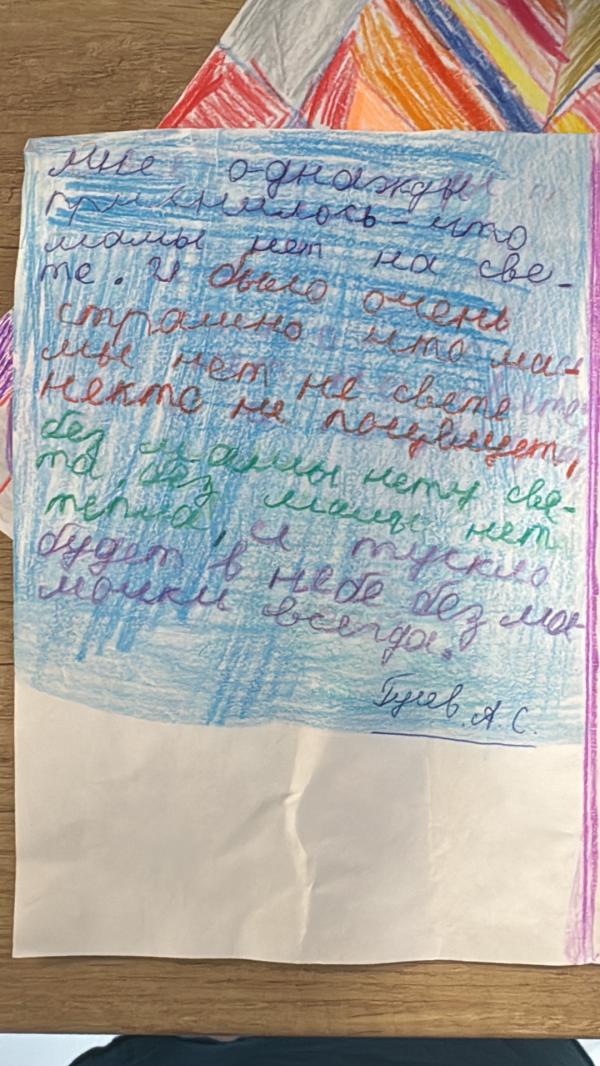 Мне однажды
приснилось-что
мамы нет на све-
те. И было очень
страшно что ма-
мы нет не свете
некто не поцелует,
без мамы нету све-
та, без мамы нет
тепла, и тускло
будет в небе без ма-
мочки всегда.
Гусев А. С.